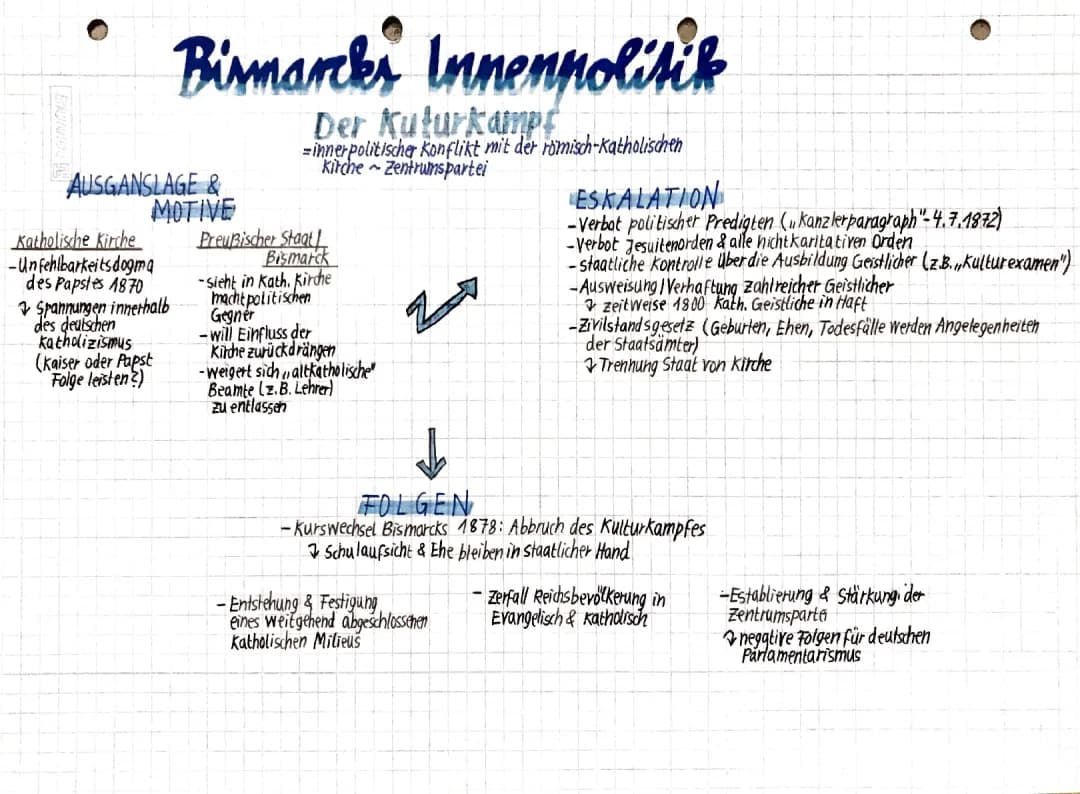 Bismarcks Innenpolitik
Der Kuturkampf
=innerpolitischer Konflikt mit der römisch-katholischen
Kirche ~ Zentrumspartei
AUSGANSLAGE &
MOTIVE
Katholische Kirche
-Unfehlbarkeitsdogma
des Papstes 1870
↴ Spannungen innerhalb
des deutschen
Katholizismus
(Kaiser oder Papst
Folge leisten?)
Preußischer Staat/
Bismarck
-sieht in Kath. Kirche
machtpolitischen
Gegner
-will Einfluss der
Kirche zurückdrängen
-weigert sich „altkatholische"
Beamte (z.B. Lehrer)
zu entlassen
ESKALATION
-Verbot politischer Predigten („Kanzlerparagraph"-4.7.1872)
-Verbot Jesuitenorden & alle nichtkaritativen Orden
-staatliche Kontrolle über die Ausbildung Geistlicher (z.B. „Kulturexamen")
-Ausweisung/Verhaftung zahlreicher Geistlicher
↴ zeitweise 1800 Kath. Geistliche in Haft
-Zivilstandsgesetz (Geburten, Ehen, Todesfälle werden Angelegenheiten
der Staatsämter)
↴ Trennung Staat von Kirche
FOLGEN
-Kurswechsel Bismarcks 1878: Abbruch des Kulturkampfes
↴ Schulaufsicht & Ehe bleiben in staatlicher Hand
-Entstehung & Festigung
eines weitgehend abgeschlossenen
Katholischen Milieus
-Zerfall Reichsbevölkerung in
Evangelisch & Katholisch
-Establierung & Stärkung der
Zentrumspartei
↴ negative Folgen für deutschen
Parlamentarismus